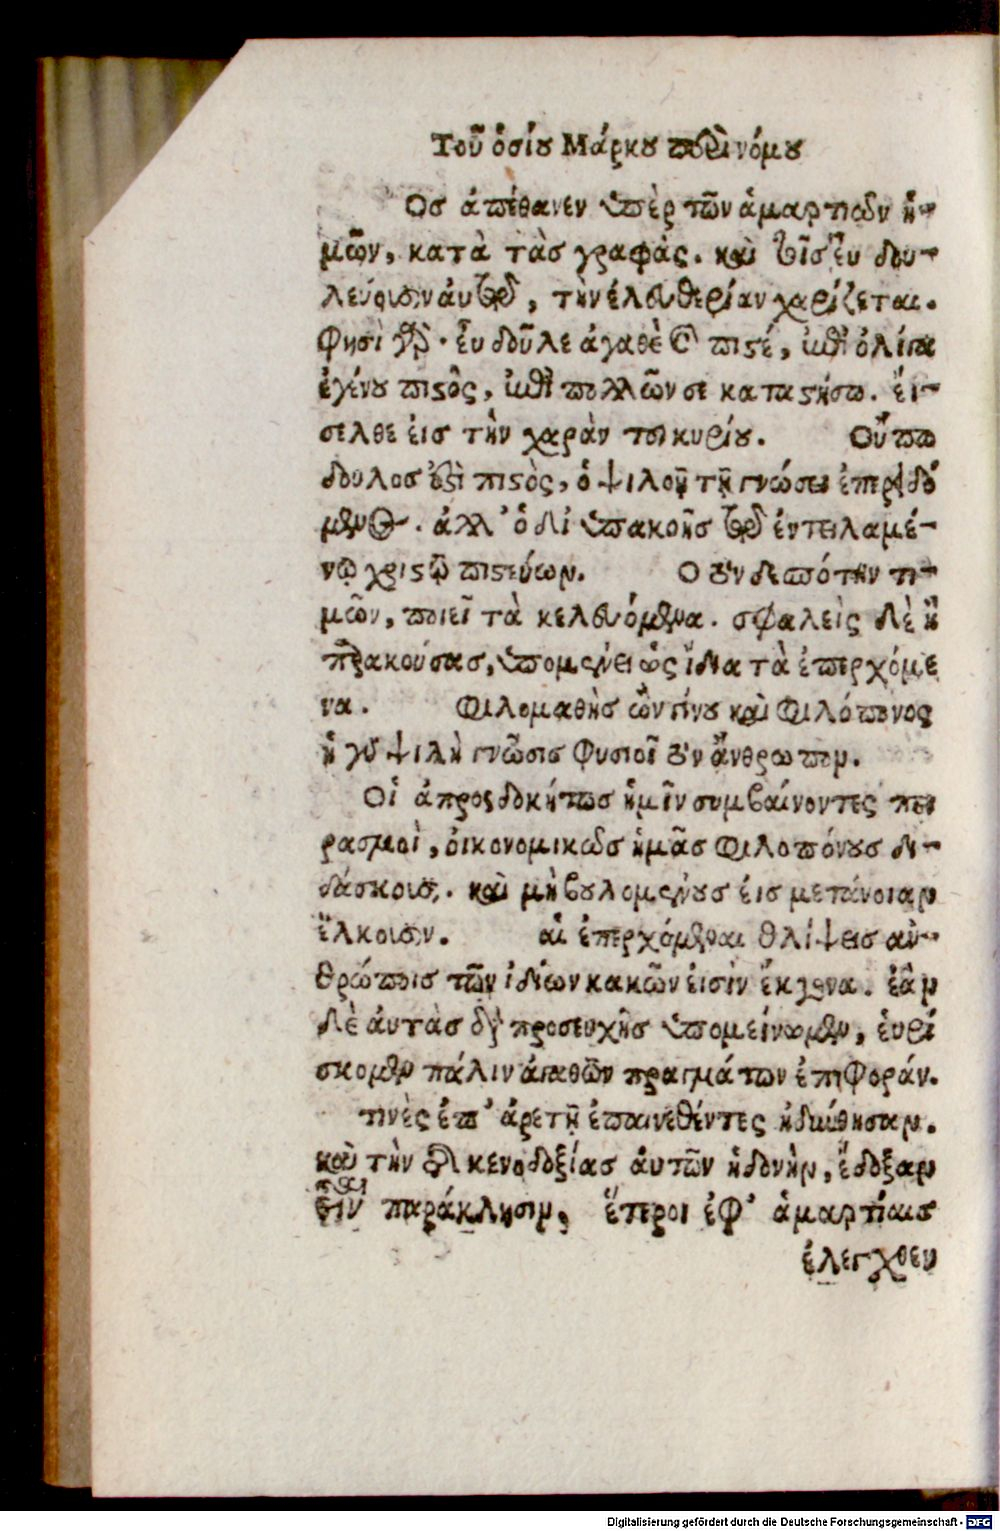 Τοῦ ὁσίου Μάρκου περὶ νόμου
Ὃσ ἀπέθανεν ὑπὲρ τῶν ἁμαρτιῶν ἡ-
μῶν, κατὰ τὰσ γραφάς. καὶ τοῖσ ἐυ δου-
λεύουσιν ἀυτῷ, τὴν ἐλευθερίαν χαρίζεται.
Φησὶ γὰρ· ἐυ δοῦλε ἀγαθὲ καὶ πιστέ, ἐπὶ ὀλίγα
ἐγένου πιστὸς, ἐπὶ πολλῶν σε καταστήσω. ἔι-
σελθε ἐισ τὴν χαρὰν τοῦ κυρίου. Οὔπω
δουλοσ ἐστὶ πιστὸς, ὁ ψιλοῇ τῇ γνώσει ἐπεριδό
μενος. ἀλλ' ὁ δι ὑπακοῆσ τῷ ἐντειλαμέ-
νῳ χριστῷ πιστεύων. Ὁ τὸν δεσπότην τι-
μῶν, ποιεῖ τὰ κελευόμενα. σφαλεὶς δὲ ἢ
παρακούσασ, ὑπομένει ὡς ἴδια τὰ ἐπερχόμε
να. Φιλομαθὴσ ὢν γίνου καὶ φιλόπονος
ἡ γὰρ ψιλὴ γνῶσισ φυσιοῖ τὸν ἄνθρωπον.
Οἱ ἀπροσδοκήτωσ ἡμῖν συμβαίνοντες πει
ρασμοὶ, ὀικονομικῶσ ἡμᾶσ φιλοπόνουσ δι-
δάσκουσι. καὶ μὴ βουλομένουσ ἐισ μετάνοιαν
ἕλκουσιν. αἱ ἐπερχόμεναι θλίψεισ ἀν-
θρώποισ τῶν ἰδίων κακῶν ἐισὶν ἔκγονα. ἐὰν
δὲ ἀυτὰσ διὰ προσευχῆσ ὑπομείνωμεν, ἑυρί
σκομεν πάλιν ἀγαθῶν πραγμάτων ἐπιφοράν.
τινὲς ἐπ' ἀρετῇ ἐπαινεθέντες ἡδύνθησαν.
καὶ τὴν τῆς κενοδοξίασ ἀυτῶν ἡδονὴν, ἔδοξαν
εἶναι παράκλησιν, ἕτεροι ἐφ' ἁμαρτίαισ
ἐλεγχθεν
Digitalisierung gefördert durch die Deutsche Forschungsgemeinschaft - DFG